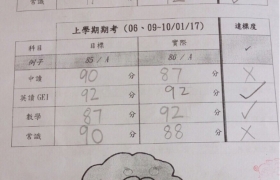 常識
上學期期考 (06、09-10/01/17) 達標度
科目 目標 實際
例子 85 / A 86 / A ✓
中讀 90 分 87 分 ✗
英讀(GE) 92 分 92 分 ✓
數學 87 分 92 分 ✓
常識 90 分 88 分 ✗